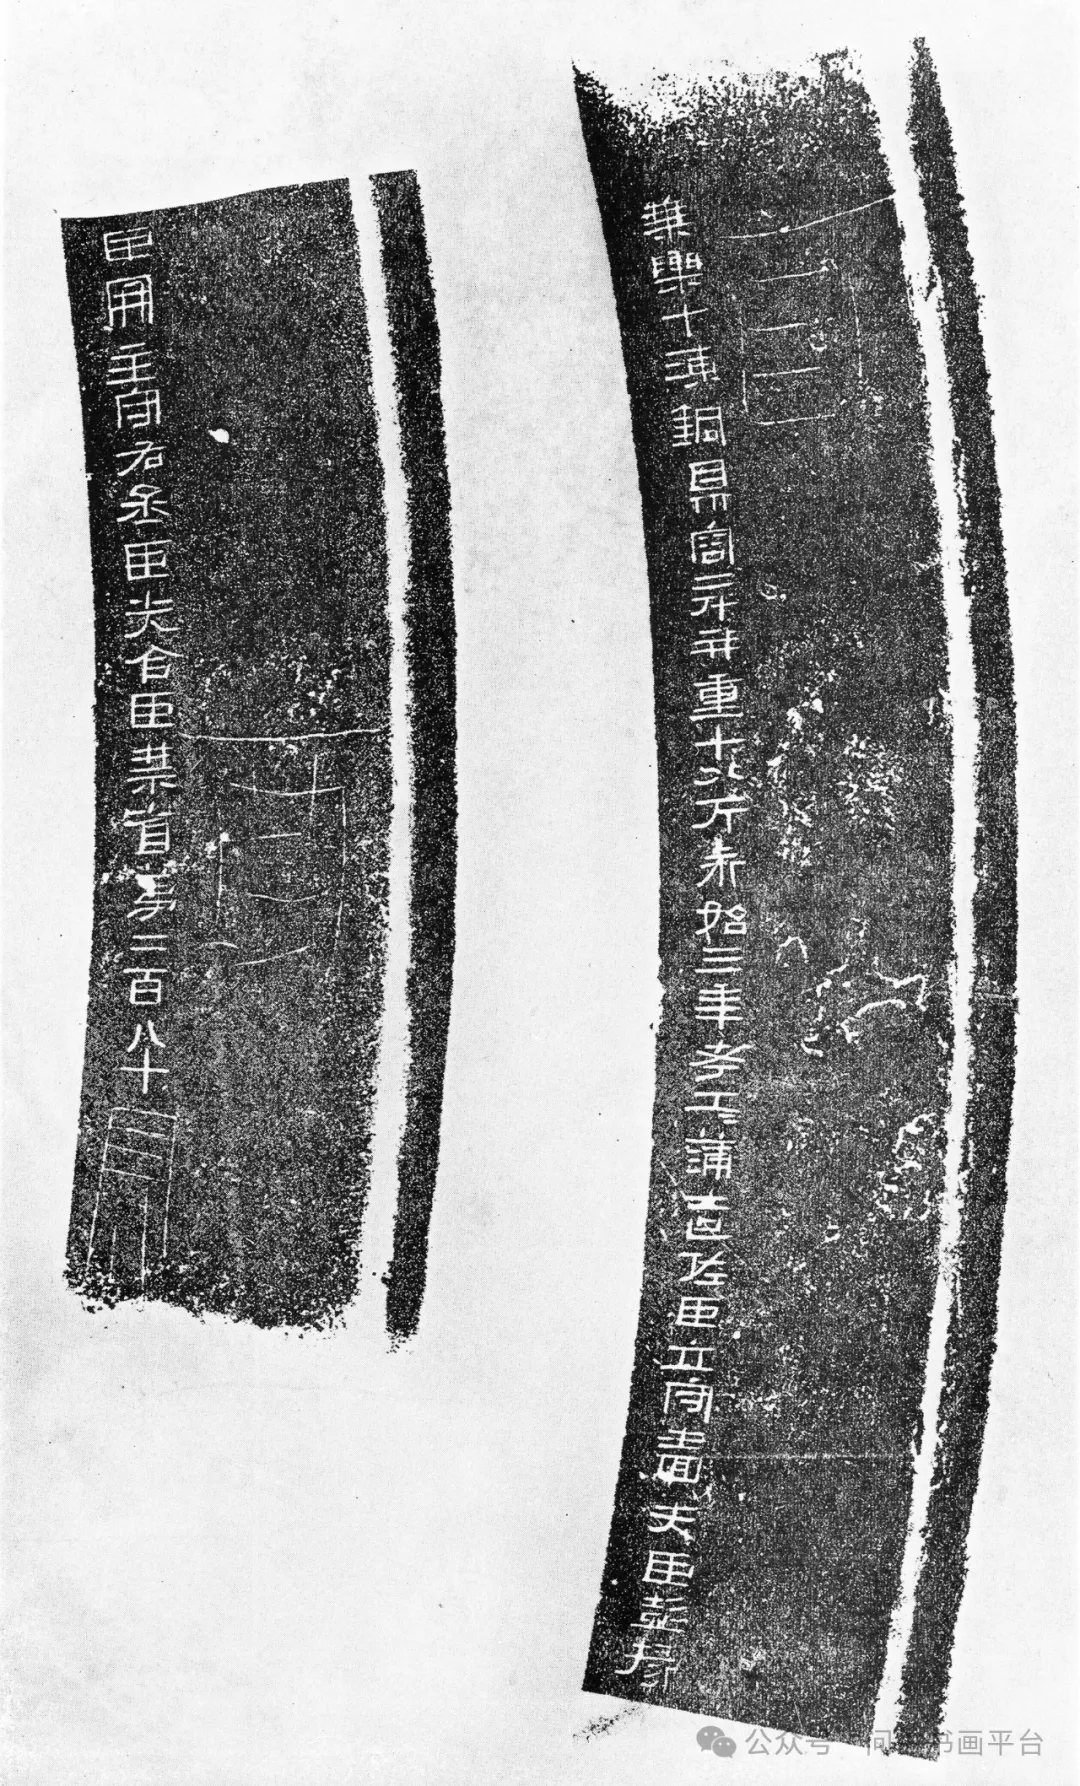 乘輿十湅銅鼎容二斗并重十八斤永始三年考工=蒲造佐臣立守嗇夫臣彭掾
臣開主守右丞臣光令臣禁省第二百八十
公众号 书画平台